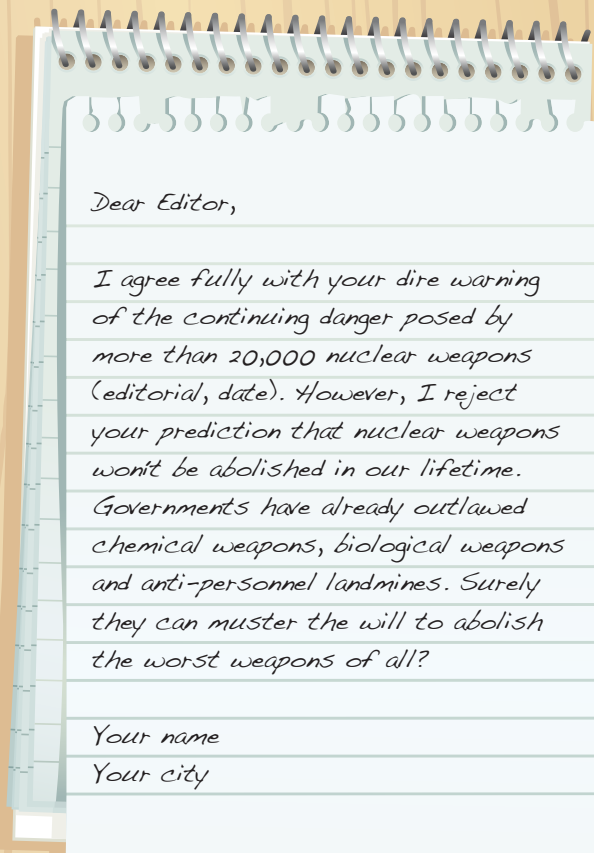 Dear Editor,
I agree fully with your dire warning
of the continuing danger posed by
more than 20,000 nuclear weapons
(editorial, date). However, I reject
your prediction that nuclear weapons
won't be abolished in our lifetime.
Governments have already outlawed
chemical weapons, biological weapons
and anti-personnel landmines. Surely
they can muster the will to abolish
the worst weapons of all?
Your name
Your city